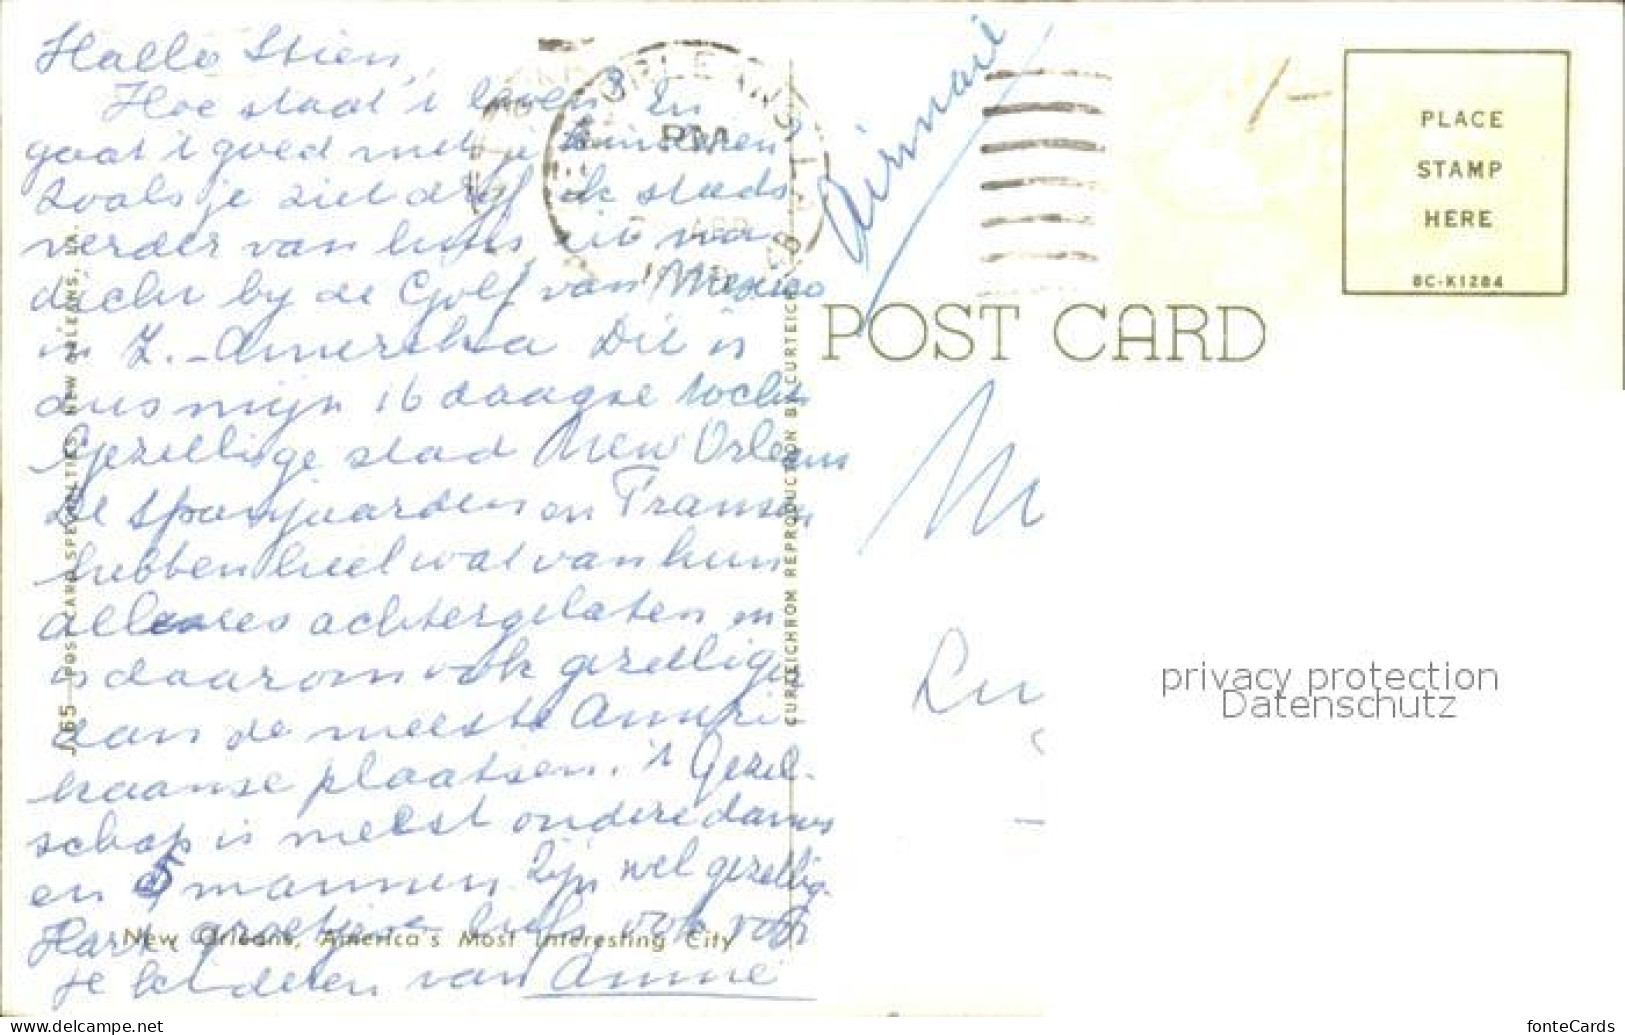 Hallo Stien,
Hoe staat 't leven? En
gaat 't goed met je kinderen?
Zoals je ziet dryf ik steeds
verder van huis nu
dicht by de Golf van Mexico
in Z.-Amerika Dit is
dus mijn 16 daagse tocht.
Gezellige stad New Orleans
de Spanjaarden en Fransen
hebben heel wat van hun
achtergelaten en
is daarom ook gezelliger
dan de meeste Ameri-
kaanse plaatsen. 't Gezel-
schap is meest oudere dames
en 5 mannen. Zijn wel gezellig.
Hart. groetjes ook voor
je kinderen van Annie
New Orleans, America's Most Interesting City
J 65—POST CARD SPECIALTIES, NEW ORLEANS, LA.
CURTEICHROM REPRODUCTION BY CURTEICH
ORLEANS, LA
PM
Airmail
1-
PLACE
STAMP
HERE
8C-K1284
POST CARD
M
Lu
privacy protection
Datenschutz
www.delcampe.net
fonteCards